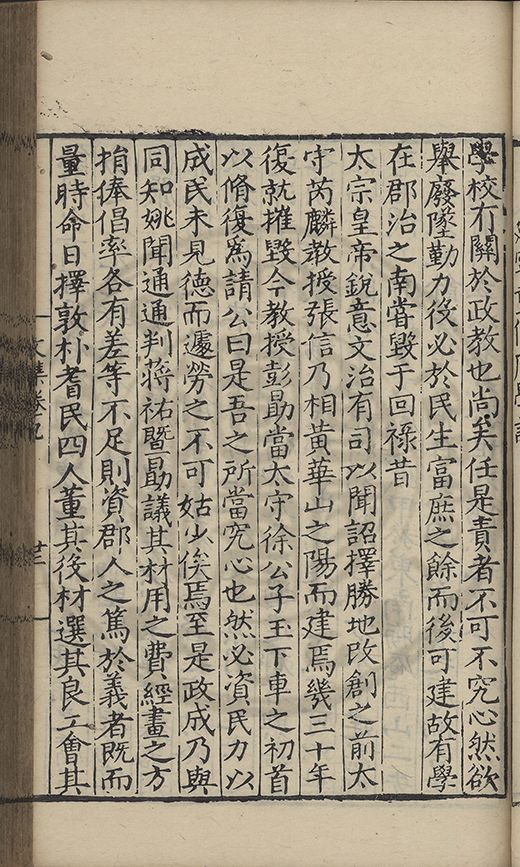 學校有關於政教也尚矣任是責者不可不究心然欲
舉廢墜勤力役必於民生富庶之餘而後可建故有學
在郡治之南嘗毀于回祿昔
太宗皇帝銳意文治有司以聞詔擇勝地改創之前太
守芮麟教授張信乃相黃華山之陽而建焉幾三十年
復就摧毀今教授彭勗當太守徐公子玉下車之初首
以脩復為請公曰是吾之所當究心也然必資民力以
成民未見德而遽勞之不可姑少俟焉至是政成乃與
同知姚聞通通判蔣祐暨勗議其材用之費經畫之方
捐俸倡率各有差等不足則資郡人之篤於義者既而
量時命日擇敦朴耆民四人董其役材選其良工會其
文集卷九